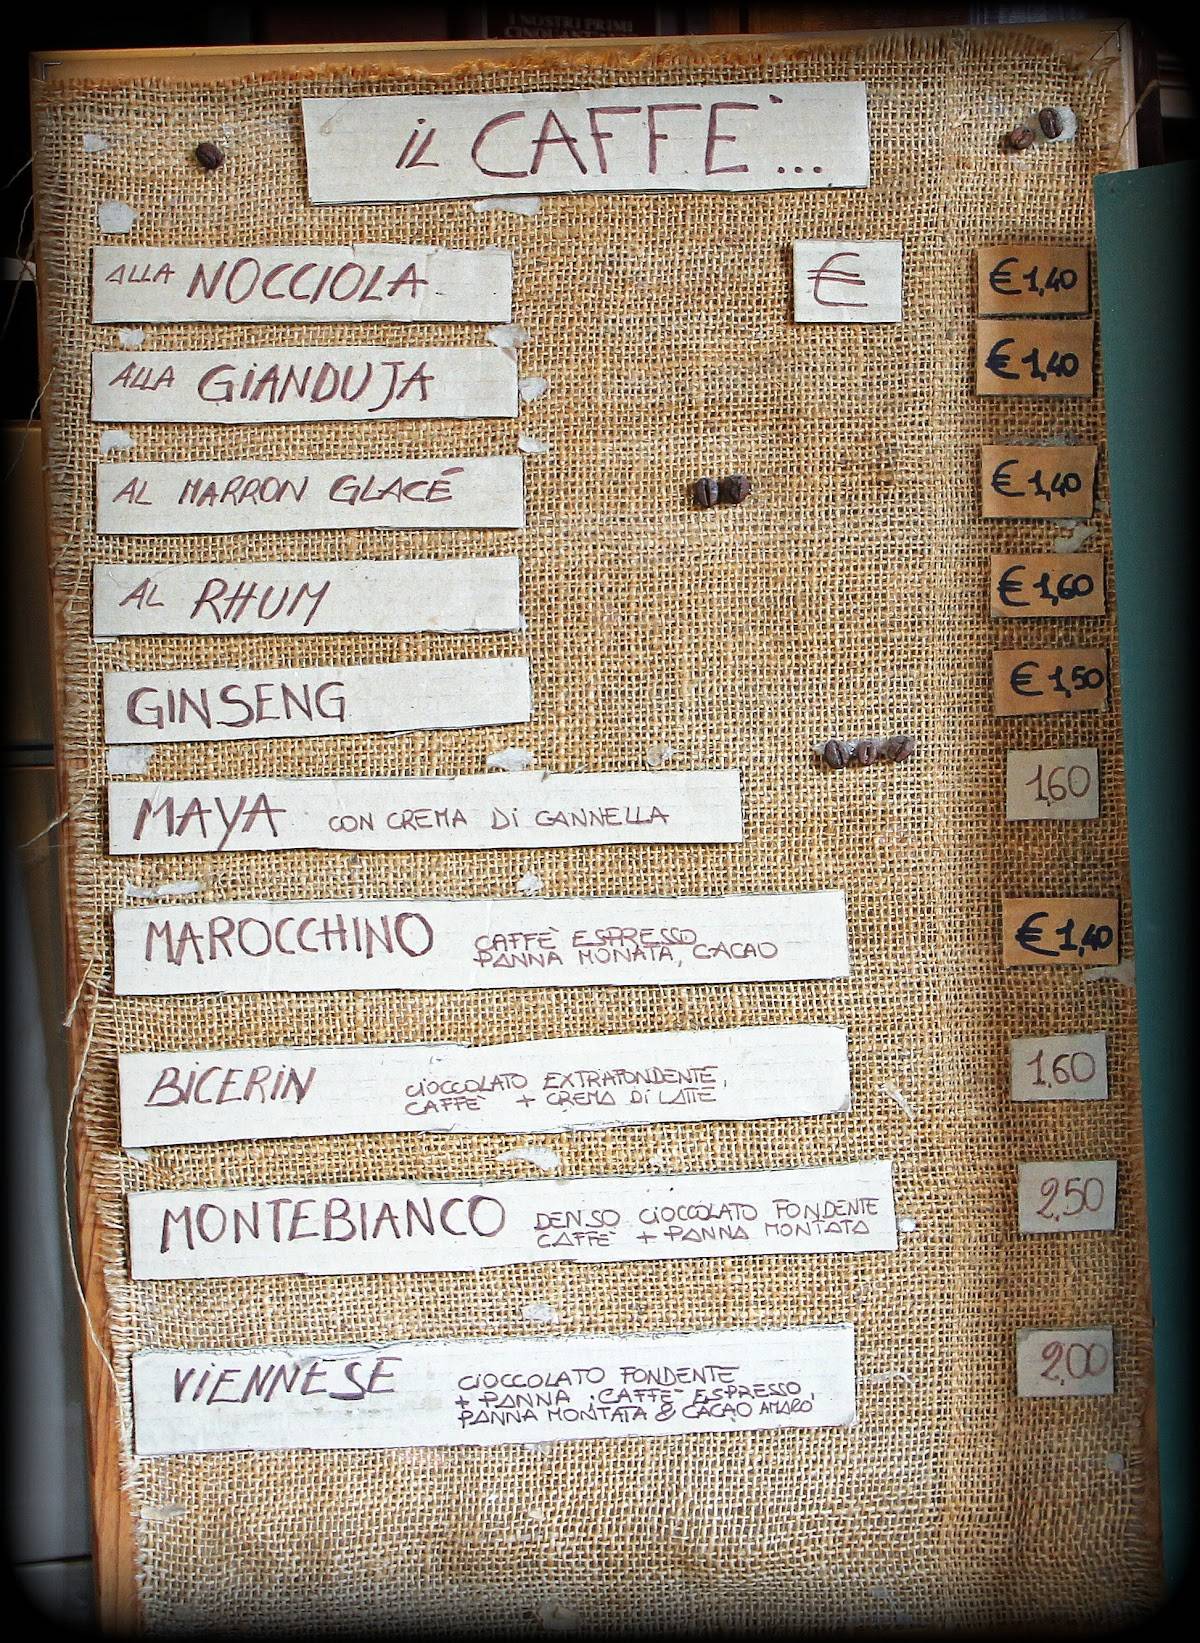 I NOSTRI PRIMI
iL CAFFÈ...
€
ALLA NOCCIOLA € 1,40
ALLA GiANDUJA € 1,40
AL MARRON GLACÉ € 1,40
AL RHUM € 1,60
GiNSENG € 1,50
MAYA CON CREMA Di CANNELLA 1,60
MAROCCHINO CAFFÈ ESPRESSO
PANNA MONATA, CACAO € 1,40
BiCERiN CiOCCOLATO EXTRAFONDENTE,
CAFFÈ + CREMA Di LATTE 1,60
MONTEBIANCO DENSO CiOCCOLATO FONDENTE
CAFFÈ + PANNA MONTATA 2,50
ViENNESE CiOCCOLATO FONDENTE
+ PANNA, CAFFÈ ESPRESSO,
PANNA MONTATA & CACAO AMARO 2,00